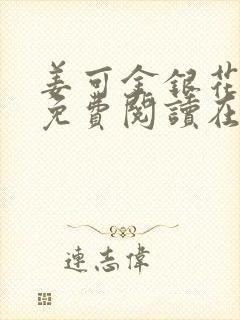 姜可金銀花
免費閱讀在
連志偉